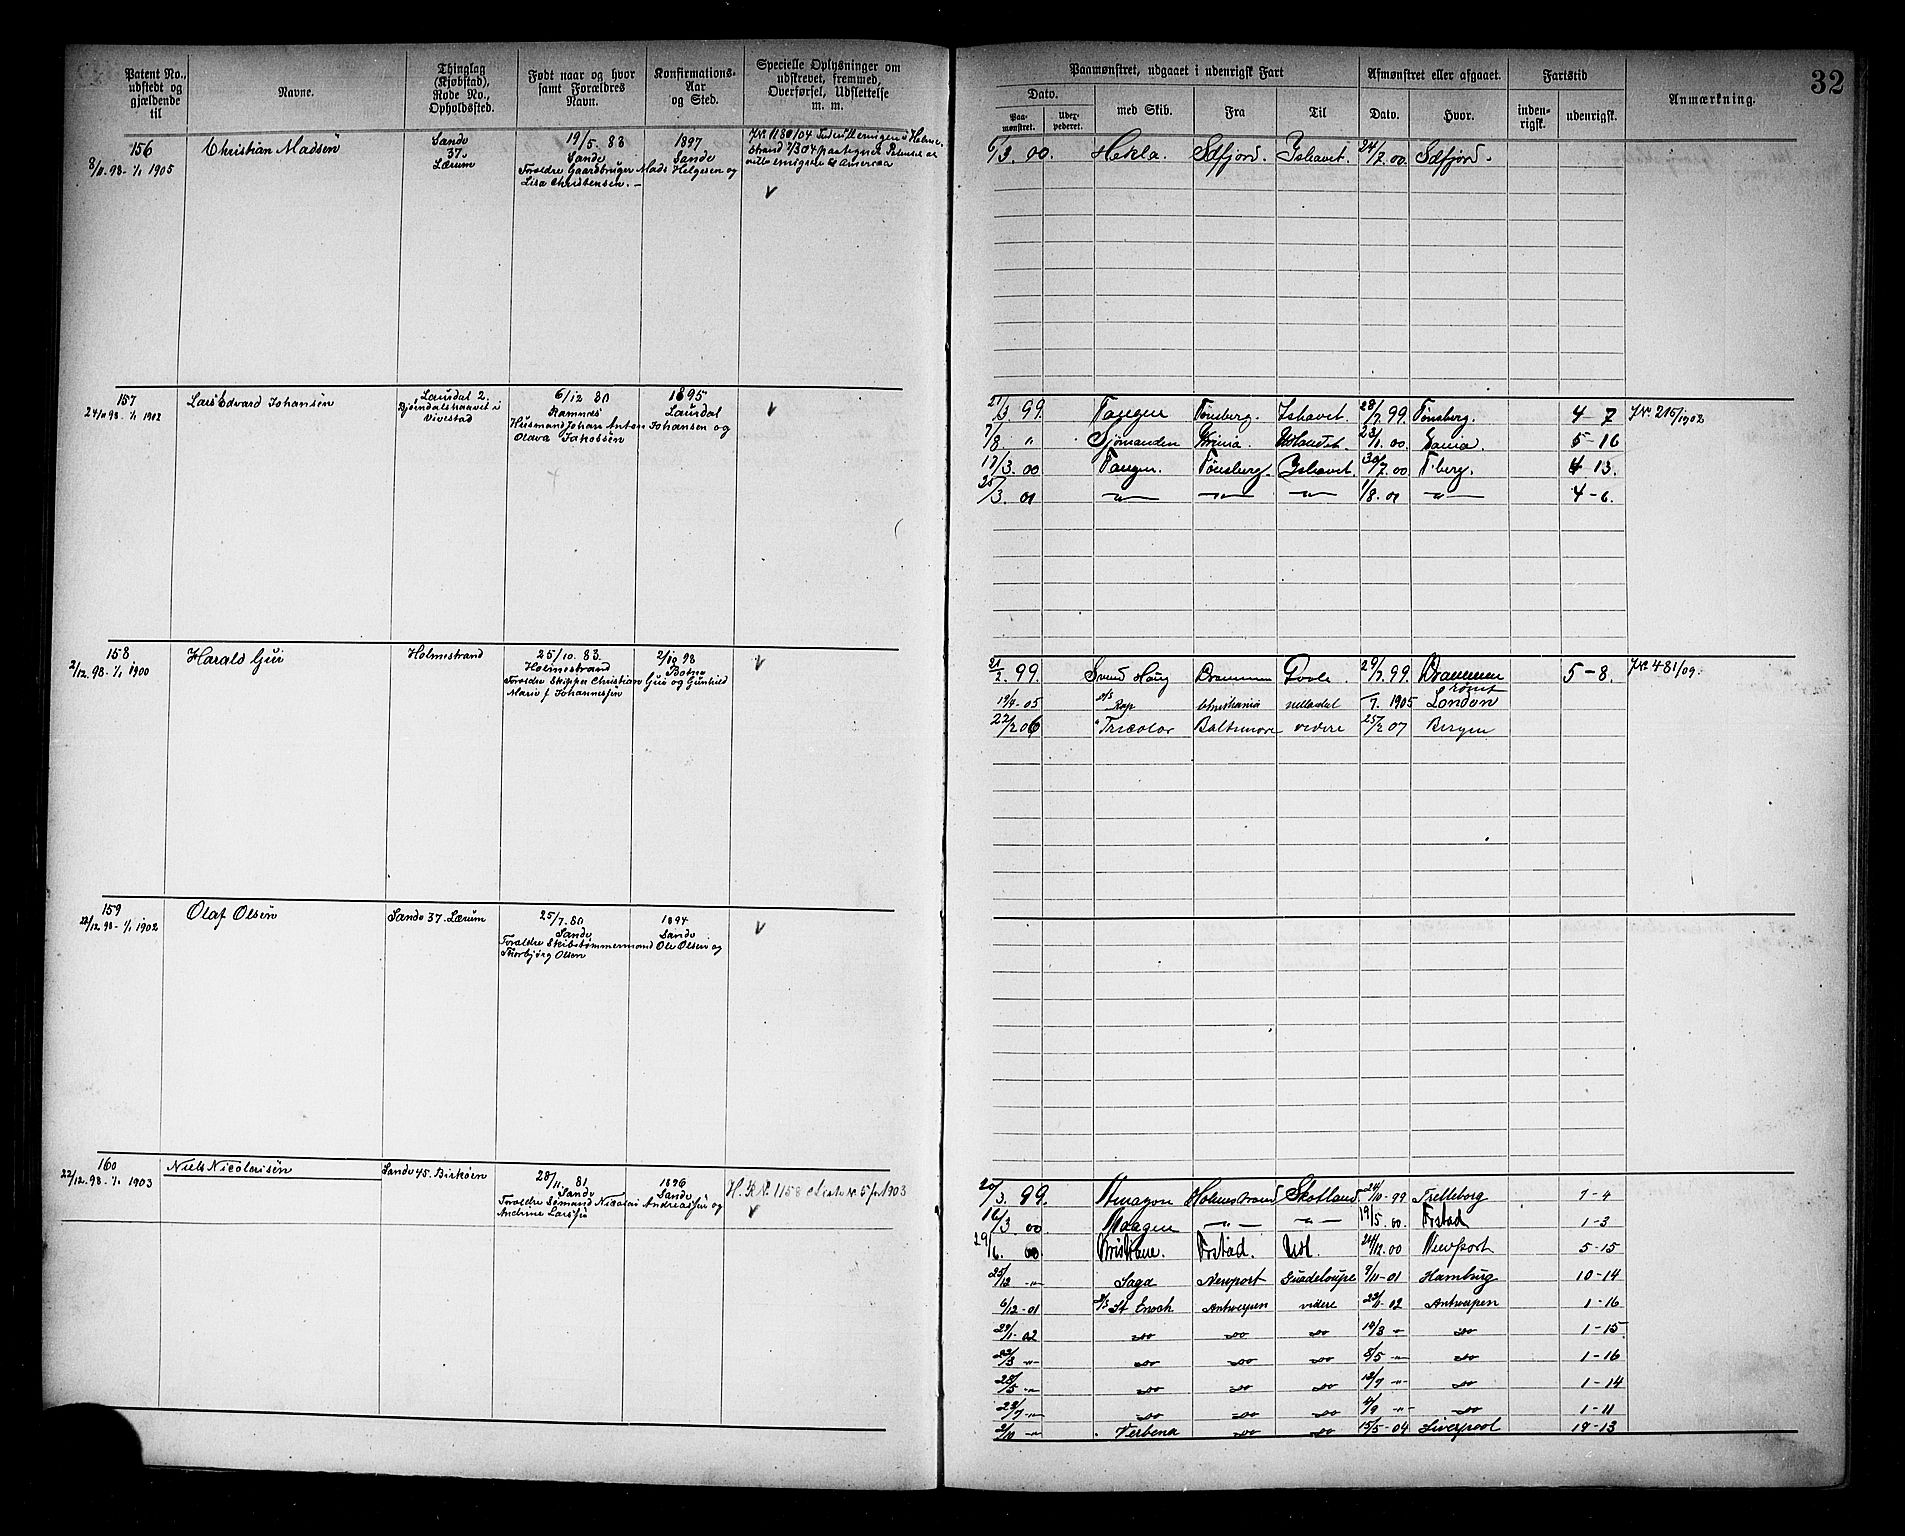 Patent No., udstedt og gjældende til
Navne.
Thinglag (Kjøbstad), Rode No., Opholdssted.
Født naar og hvor samt Forældres Navn.
Konfirmations-Aar og Sted.
Specielle Oplysninger om udskrevet, fremmed, Overførsel, Udslettelse m. m.
Paamønstret, udgaaet i udenrigsk Fart
Afmønstret eller afgaaet.
Fartstid
Anmærkning.
32
Dato.
Paa-mønstret.
Uder-pederet.
med Skib.
Fra
Til
Dato.
Hvor.
inden-rigsk.
udenrigsk.
156
8/11.98-1/1 1905
Christian Madsen
Sande
37.
Lærum
19/5. 83
Sande
Foraldre Gaardbruger Mads Helgesen og
Lisa Christensen.
1897
Sande
JNr. 1180/04
6/3. 00. Hekla Sdfjord. Ishavet. 24/7. 00. Sdfjord.
157
24/11 98-1/1 1902
Lars Edvard Johansen
Laurdal 2.
Vivestad
6/12 80
Ramnes
Husmand Johan Anton Johansen og
Olava Jakobsen
1895
Laurdal
21/3. 99. Tangen Tønsberg. Ishavet 28/7. 99. Tønsberg. 4-7 JNr. 215/1902
7/8 " Sjømanden 23/1. 00. 5-16
17/3. 00 Tangen. Tønsberg. Ishavet 30/7. 00 T.berg. 4 13.
25/3. 01 -"- -"- -"- 1/8. 01 -"- 4-6.
158
2/12. 98-1/1 1900
Harald Gui
Holmestrand
25/10. 83.
Holmestrand
Foraldre Skipper Christian Gui og Gunhild
Marie f Johannesen
2/10 98
Botne
21/2. 99. Svend Høyg Drammen 29/7. 99 Drammen 5-8. JNr. 481/09.
19/9-05 D/S Rap Christiania 1905 rømt London
22/2 06 " Tricolor Baltimore videre 25/2 07 Bergen
159
22/12. 98-1/1 1902
Olaf Olsen
Sande 37. Lærum
25/7. 80
Sande
Foraldre Skibstømmermand Ole Olsen og
Thorbjørg Olsen
1894
Sande
160
22/12. 98-1/1 1903
Niels Nicolaisen
Sande 45. Birkøen
28/11. 81
Sande
Foraldre Sømand Nicolai Andreassen og
Andrine Larssen
1896
Sande
20/3. 99. Holmestrand Skotland. 24/10-99 Trelleborg 7-4
16/3 00 Maagen -"- -"- 19/5. 00. Frstad 1-3
29/6. 00 Kristiane. Frstad. Udl. 24/12. 00 Niewport 5-15
25/12 -"- Saga Newport Guadeloupe 9/11-01 Hamburg 10-14
6/12-01 D/S St Enoch Antwerpen videre 23/1-02 Antwerpen 1-16
29/1-02 do do do 14/3 -"- do 1-15
22/3 -"- do do do 8/5 -"- do 1-16
22/5 -"- do do do 12/7 -"- do 1-14
22/7 -"- do do do 4/9 -"- do 1-11
2/10 -"- Verbena do do 15/5-04 Liverpool 19-13